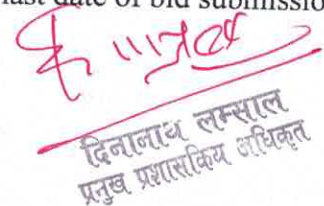 last date of bid submission
दिनानाथ लम्साल
प्रमुख प्रशासकिय अधिकृत